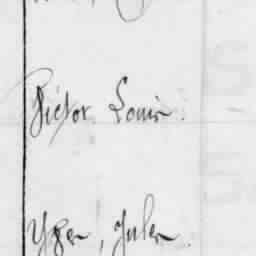 Victor Louis.
Yger, Jules.